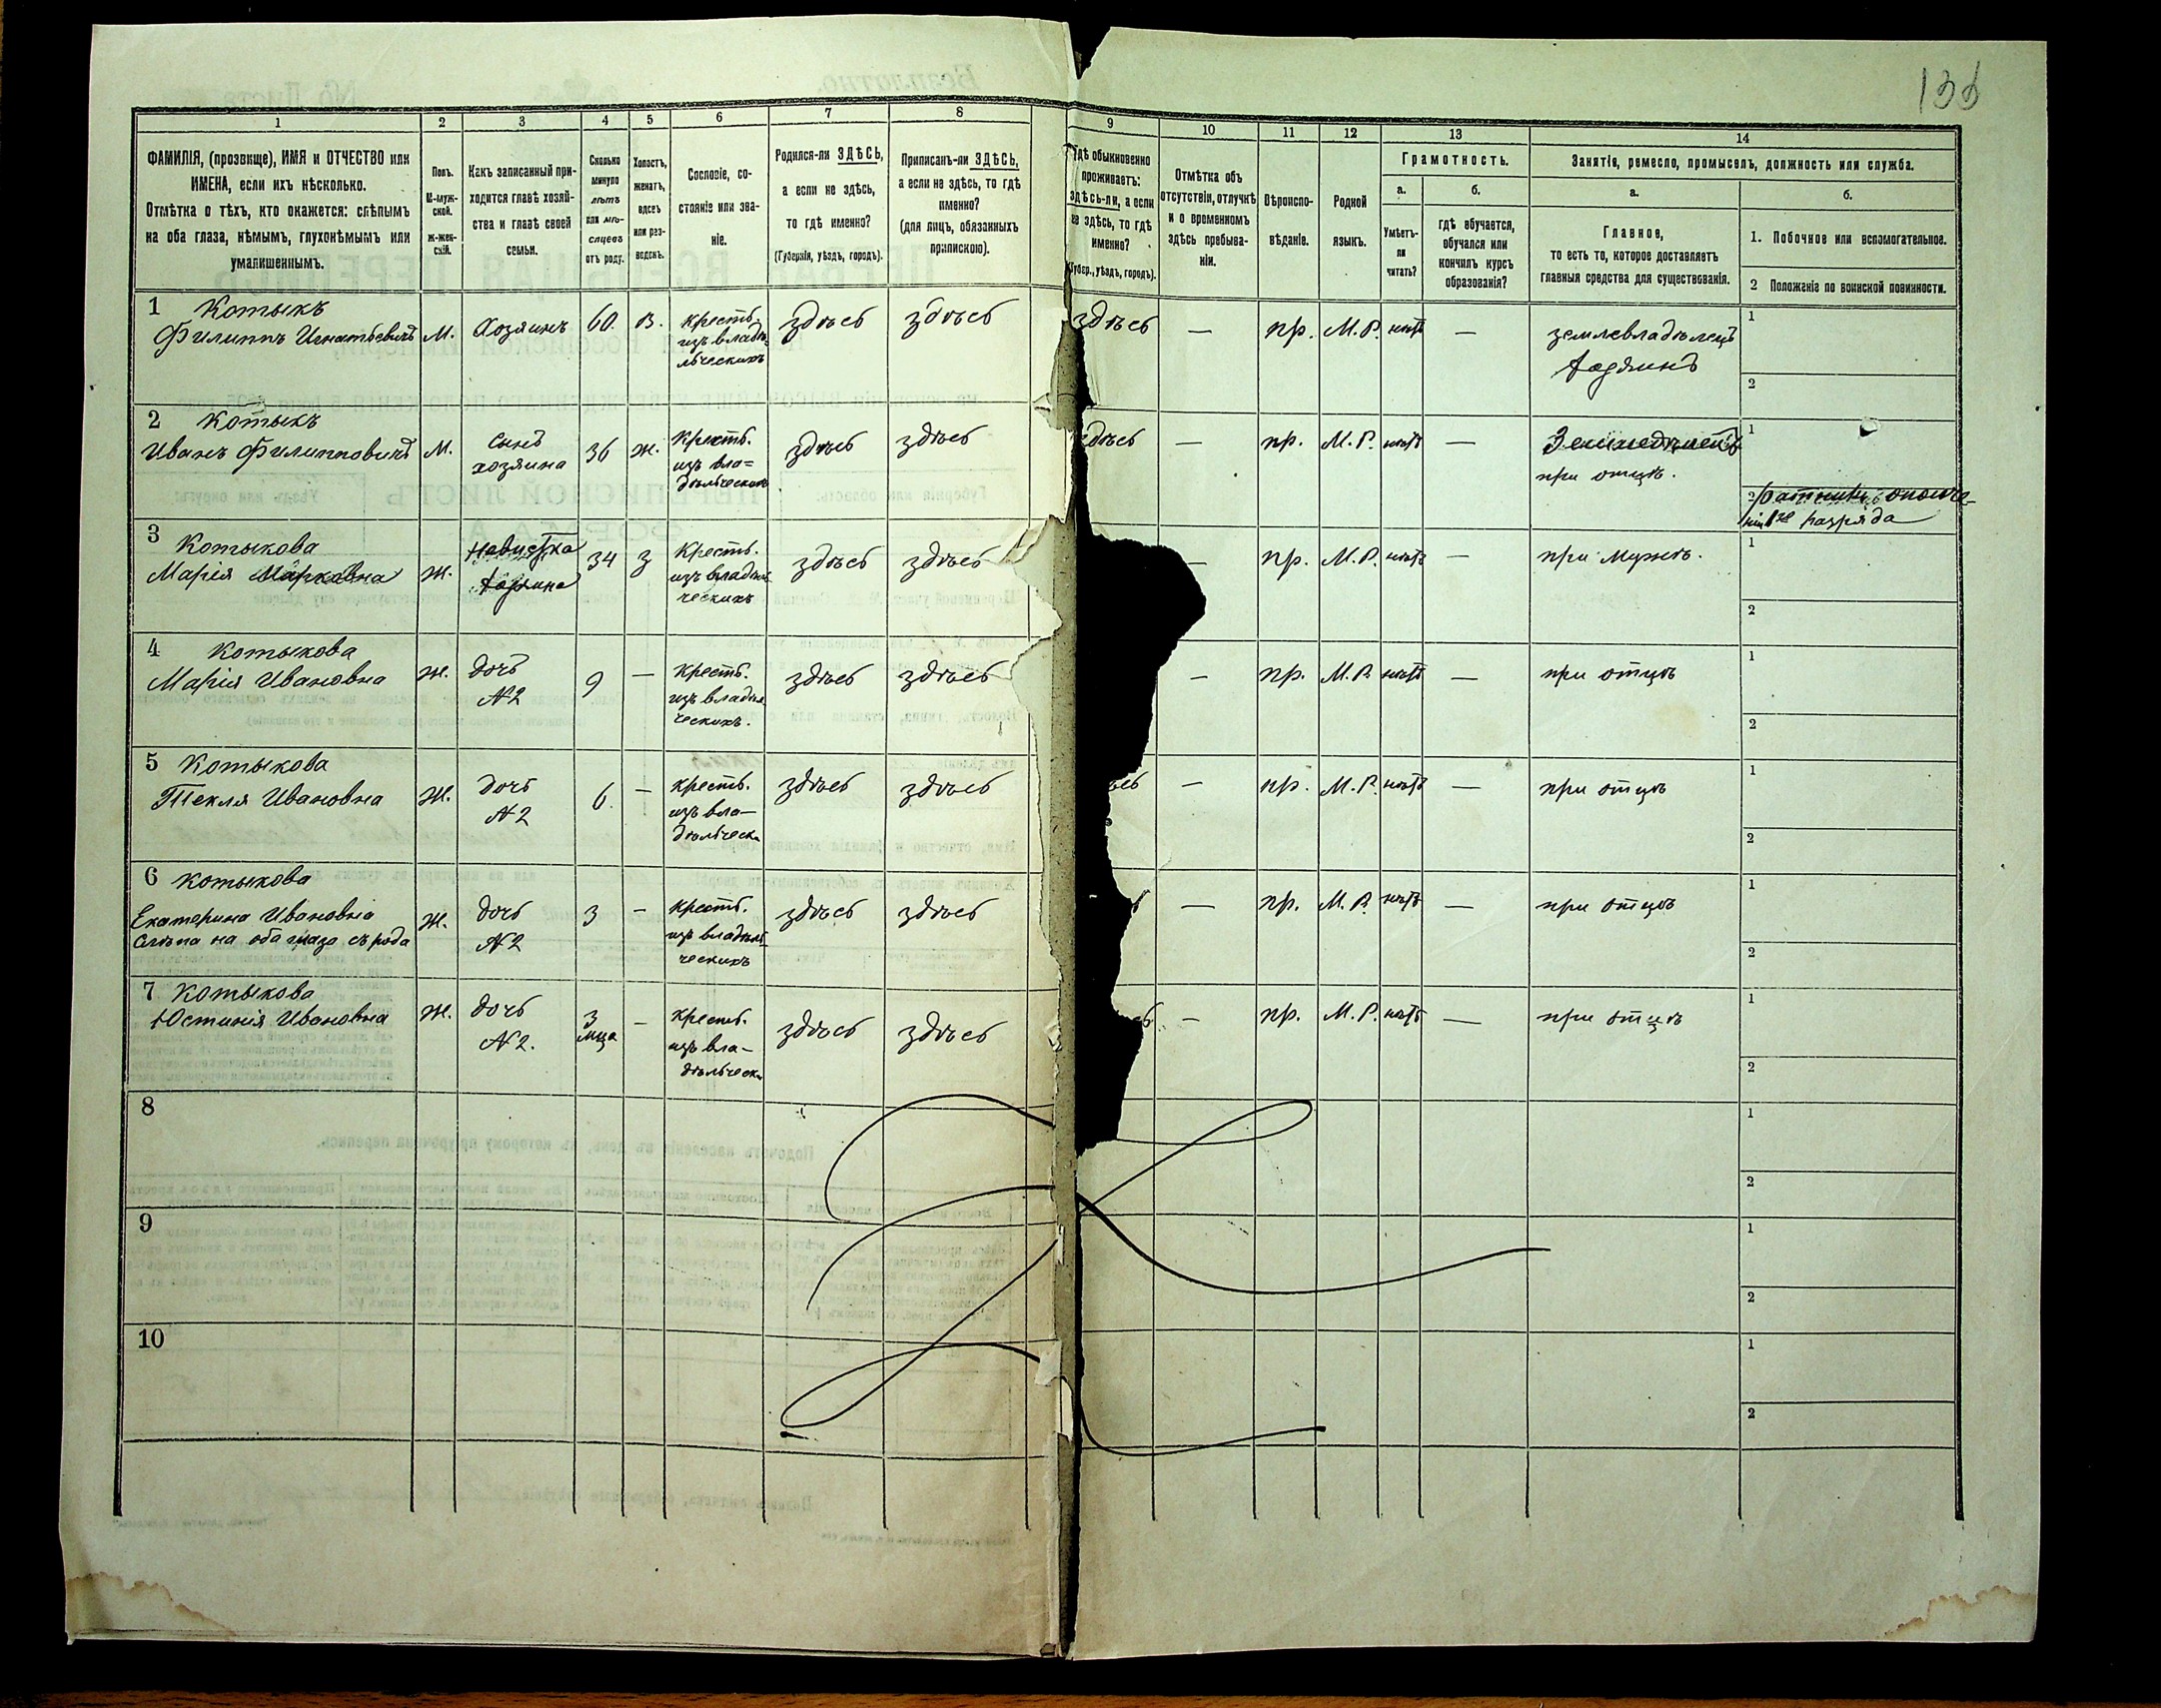 135
1 2 3 4 5 6 7 8 9 10 11 12 13 14
ФАМИЛІЯ, (прозвище), ИМЯ и ОТЧЕСТВО или
ИМЕНА, если ихъ нѣсколько.
Отмѣтка о тѣхъ, кто окажется: слѣпымъ
на оба глаза, нѣмымъ, глухонѣмымъ или
умалишеннымъ.
Полъ.
М-муж-
ской.
ж-жен-
скій.
Какъ записанный при-
ходится главѣ хозяй-
ства и главѣ своей
семьи.
Сколько
минуло
лѣтъ
или мѣ-
сяцевъ
отъ роду.
Холостъ,
женатъ,
вдовъ
или раз-
веденъ.
Сословіе, со-
стояніе или зва-
ніе.
Родился-ли ЗДѢСЬ,
а если не здѣсь,
то гдѣ именно?
(Губернія, уѣздъ, городъ).
Приписанъ-ли ЗДѢСЬ,
а если не здѣсь, то гдѣ
именно?
(для лицъ, обязанныхъ
припискою).
Гдѣ обыкновенно
проживаетъ:
здѣсь-ли, а если
не здѣсь, то гдѣ
именно?
(Губер., уѣздъ, городъ).
Отмѣтка объ
отсутствіи, отлучкѣ
и о временномъ
здѣсь пребыва-
ніи.
Вѣроиспо-
вѣданіе.
Родной
языкъ.
Грамотность.
а.
Умѣетъ-
ли
читать?
б.
гдѣ обучается,
обучался или
кончилъ курсъ
образованія?
Занятіе, ремесло, промыселъ, должность или служба.
а.
Главное,
то есть то, которое доставляетъ
главныя средства для существованія.
б.
1. Побочное или вспомогательное.
2 Положеніе по воинской повинности.
1 Котыкъ
Филиппъ Игнатьевичъ М. Хозяинъ 60. В. Кресть. здѣсь здѣсь здѣсь — пр. М.Р. нѣтъ — землевладѣлецъ 1
изъ владѣ-
льческихъ
хозяинъ
2
2 Котыкъ
Иванъ Филипповичъ М. Сынъ 36 ж. Кресть. здѣсь здѣсь здѣсь — пр. М.Р. нѣтъ — Земледѣлецъ 1
хозяина
изъ вла=
дѣльческихъ
при отцѣ.
2 Ратникъ ополче-
нія 1го разряда
3 Котыкова
Марія Марковна ж. Невѣстка 34 З Кресть. здѣсь здѣсь — пр. М.Р. нѣтъ — при мужѣ. 1
хозяина
изъ владѣль
ческихъ
2
4 Котыкова
Марія Ивановна ж. дочь 9 — Кресть. здѣсь здѣсь — пр. М.Р. нѣтъ — при отцѣ 1
№2
изъ владѣл
ческихъ.
2
5 Котыкова
Текля Ивановна Ж. дочь 6. — кресть. здѣсь здѣсь — пр. М.Р. нѣтъ — при отцѣ 1
№2
изъ вла—
дѣльческ
2
6 Котыкова
Екатерина Ивановна ж. дочь 3 — Кресть. здѣсь здѣсь — пр. М.Р. нѣтъ — при отцѣ 1
Слѣпа на оба глаза съ рода
№2
изъ владѣль
ческихъ
2
7 Котыкова
Юстинія Ивановна ж. дочь 3 — Кресть. здѣсь здѣсь — пр. М.Р. нѣтъ — при отцѣ 1
№2.
мца
изъ вла—
дѣльческ
2
8 1
2
9 1
2
10 1
2